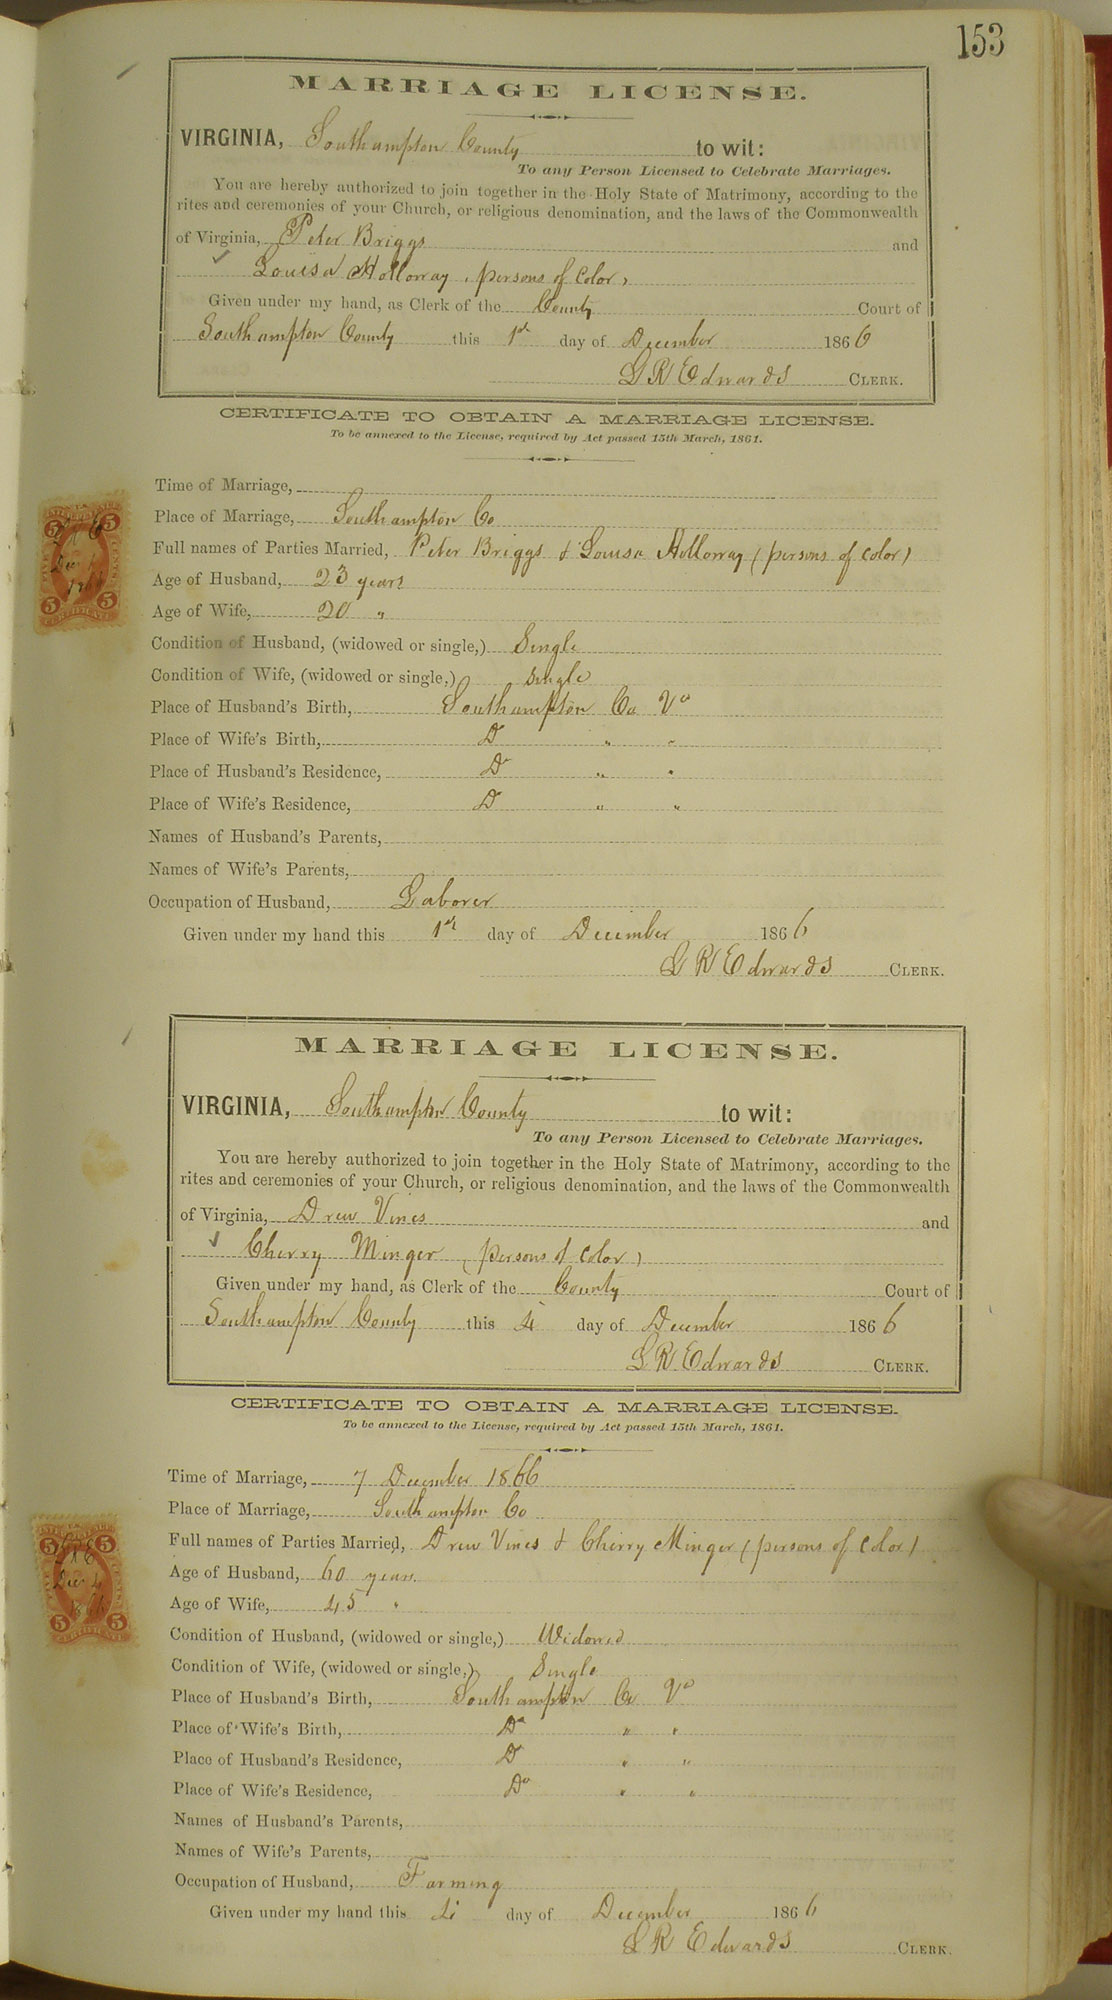 153
MARRIAGE LICENSE.
VIRGINIA, Southampton County to wit:
To any Person Licensed to Celebrate Marriages.
You are hereby authorized to join together in the Holy State of Matrimony, according to the
rites and ceremonies of your Church, or religious denomination, and the laws of the Commonwealth
of Virginia, Peter Briggs and
Louisa Holloway, persons of color,
Given under my hand, as Clerk of the County Court of
Southampton County this 1st day of December 1866
L R Edwards CLERK.
CERTIFICATE TO OBTAIN A MARRIAGE LICENSE.
To be annexed to the License, required by Act passed 15th March, 1861.
Time of Marriage,
Place of Marriage, Southampton Co
Full names of Parties Married, Peter Briggs & Louisa Holloway (persons of color)
Age of Husband, 23 years
Age of Wife, 20 "
Condition of Husband, (widowed or single,) Single
Condition of Wife, (widowed or single,) single
Place of Husband's Birth, Southampton Co Va
Place of Wife's Birth, Do " "
Place of Husband's Residence, Do " "
Place of Wife's Residence, Do " "
Names of Husband's Parents,
Names of Wife's Parents,
Occupation of Husband, Laborer
Given under my hand this 1st day of December 1866
L R Edwards CLERK.
MARRIAGE LICENSE.
VIRGINIA, Southampton County to wit:
To any Person Licensed to Celebrate Marriages.
You are hereby authorized to join together in the Holy State of Matrimony, according to the
rites and ceremonies of your Church, or religious denomination, and the laws of the Commonwealth
of Virginia, Drew Vines and
Cherry Minger (persons of color)
Given under my hand, as Clerk of the County Court of
Southampton County this 4 day of December 1866
L R Edwards CLERK.
CERTIFICATE TO OBTAIN A MARRIAGE LICENSE.
To be annexed to the License, required by Act passed 15th March, 1861.
Time of Marriage, 7 December 1866
Place of Marriage, Southampton Co
Full names of Parties Married, Drew Vines & Cherry Minger (persons of color)
Age of Husband, 60 years
Age of Wife, 45 "
Condition of Husband, (widowed or single,) Widowed
Condition of Wife, (widowed or single,) Single
Place of Husband's Birth, Southampton Co Va
Place of Wife's Birth, Do " "
Place of Husband's Residence, Do " "
Place of Wife's Residence, Do " "
Names of Husband's Parents,
Names of Wife's Parents,
Occupation of Husband, Farming
Given under my hand this 4 day of December 1866
L R Edwards CLERK.